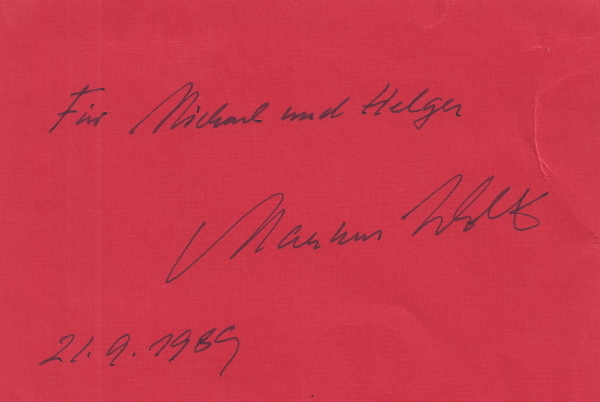 Für Michael und Helger
Markus Wolf
21.9.1989